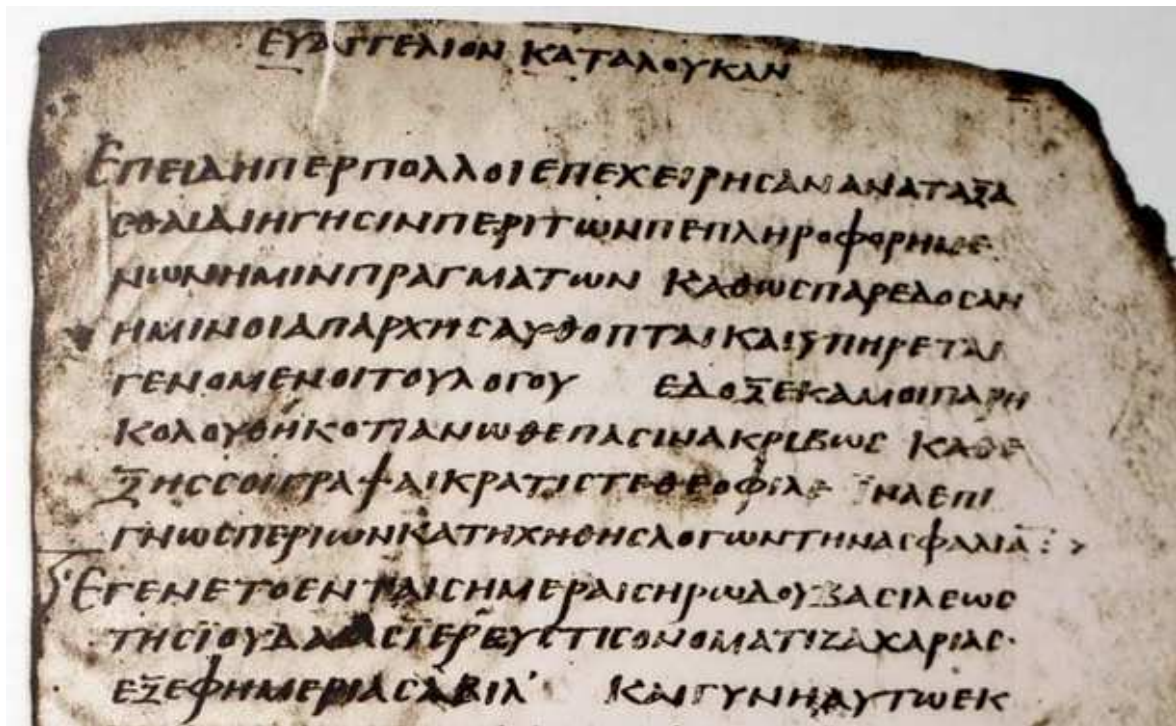 ΕΥΑΓΓΕΛΙΟΝ ΚΑΤΑΛΟΥΚΑΝ
ΕΠΕΙΔΗΠΕΡΠΟΛΛΟΙΕΠΕΧΕΙΡΗCΑΝΑΝΑΤΑΞΑ
CΘΑΙΔΙΗΓΗCΙΝΠΕΡΙΤΩΝΠΕΠΛΗΡΟΦΟΡΗΜΕ
ΝΩΝΗΜΙΝΠΡΑΓΜΑΤΩΝ ΚΑΘΩCΠΑΡΕΔΟCΑΝ
ΗΜΙΝΟΙΑΠΑΡΧΗCΑΥΘΟΠΤΑΙΚΑΙΥΠΗΡΕΤΑΙ
ΓΕΝΟΜΕΝΟΙΤΟΥΛΟΓΟΥ ΕΔΟΞΕΚΑΜΟΙΠΑΡΗ
ΚΟΛΟΥΘΗΚΟΤΙΑΝΩΘΕΠΑCΙΝΑΚΡΙΒΩC ΚΑΘΕ
ΞΗCCΟΙΓΡΑΨΑΙΚΡΑΤΙCΤΕΘΕΟΦΙΛΕ ΪΝΑΕΠΙ
ΓΝΩCΠΕΡΙΩΝΚΑΤΗΧΗΘΗCΛΟΓΩΝΤΗΝΑCΦΑΛΙΑ
ΕΓΕΝΕΤΟΕΝΤΑΙCΗΜΕΡΑΙCΗΡΩΔΟΥΒΑCΙΛΕΩC
ΤΗCΪΟΥΔΑΙΑCΪΕΡΕΥCΤΙCΟΝΟΜΑΤΙΖΑΧΑΡΙΑC·
ΕΞΕΦΗΜΕΡΙΑCΑΒΙΑ' ΚΑΙΓΥΝΗΑΥΤΩΕΚ